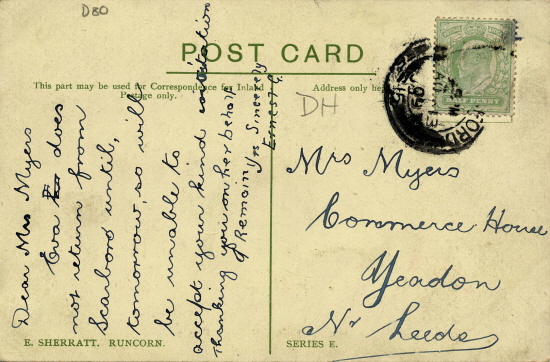 D80
POST CARD
This part may be used for Correspondence for Inland
Postage only.
Address only here
HALF PENNY
DH
Dear Mrs Myers
Eva does
not return from
Scarboro until,
tomorrow, so will
be unable to
accept your kind invitation
Thanking you on her behalf
I Remain Yrs Sincerely
Ernest G.
Mrs Myers
Commerce House
Yeadon
Nr Leeds
E. SHERRATT, RUNCORN.
SERIES E.